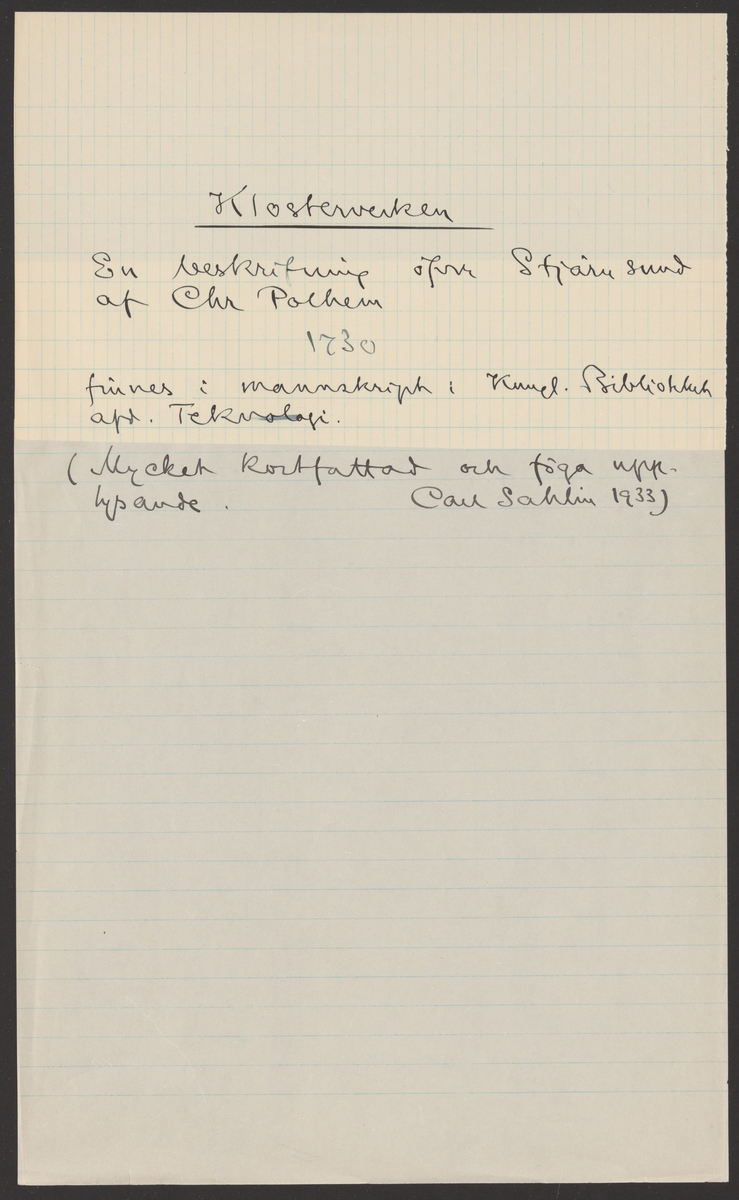 Klosterverken
En beskrifning öfver Stjärnsund
af Chr Polhem
1730
finnes i mannskript i Kungl. Biblioteket
afd. Teknologi.
(Mycket kortfattad och föga upp-
lysande. Carl Sahlin 1933)